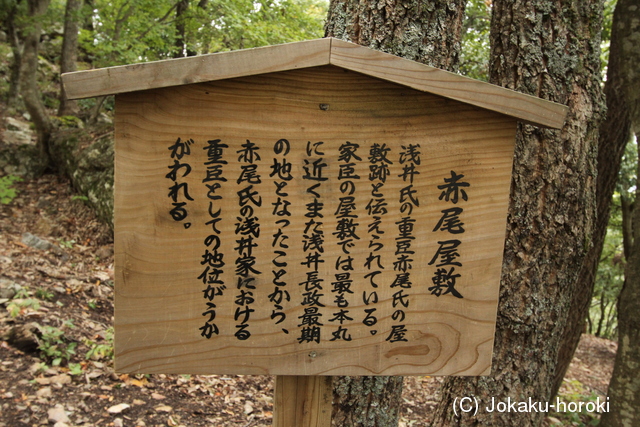 赤尾屋敷
浅井氏の重臣赤尾氏の屋
敷跡と伝えられている。
家臣の屋敷では最も本丸
に近くまた浅井長政最期
の地となったことから、
赤尾氏の浅井家における
重臣としての地位がうか
がわれる。
(C) Jokaku-horoki